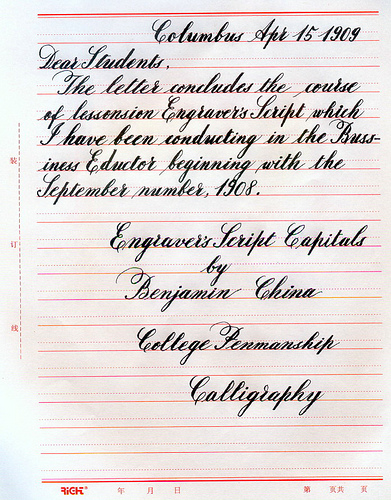 Columbus Apr 15 1909
Dear Students,
The letter concludes the course
of lessonsion Engraver's Script which
I have been conducting in the Buss-
iness Eductor beginning with the
September number, 1908.
Engraver's Script Capitals
by
Benjamin China
College Penmanship
Calligraphy
装
订
线
RiCH®
年 月 日 第 页共 页